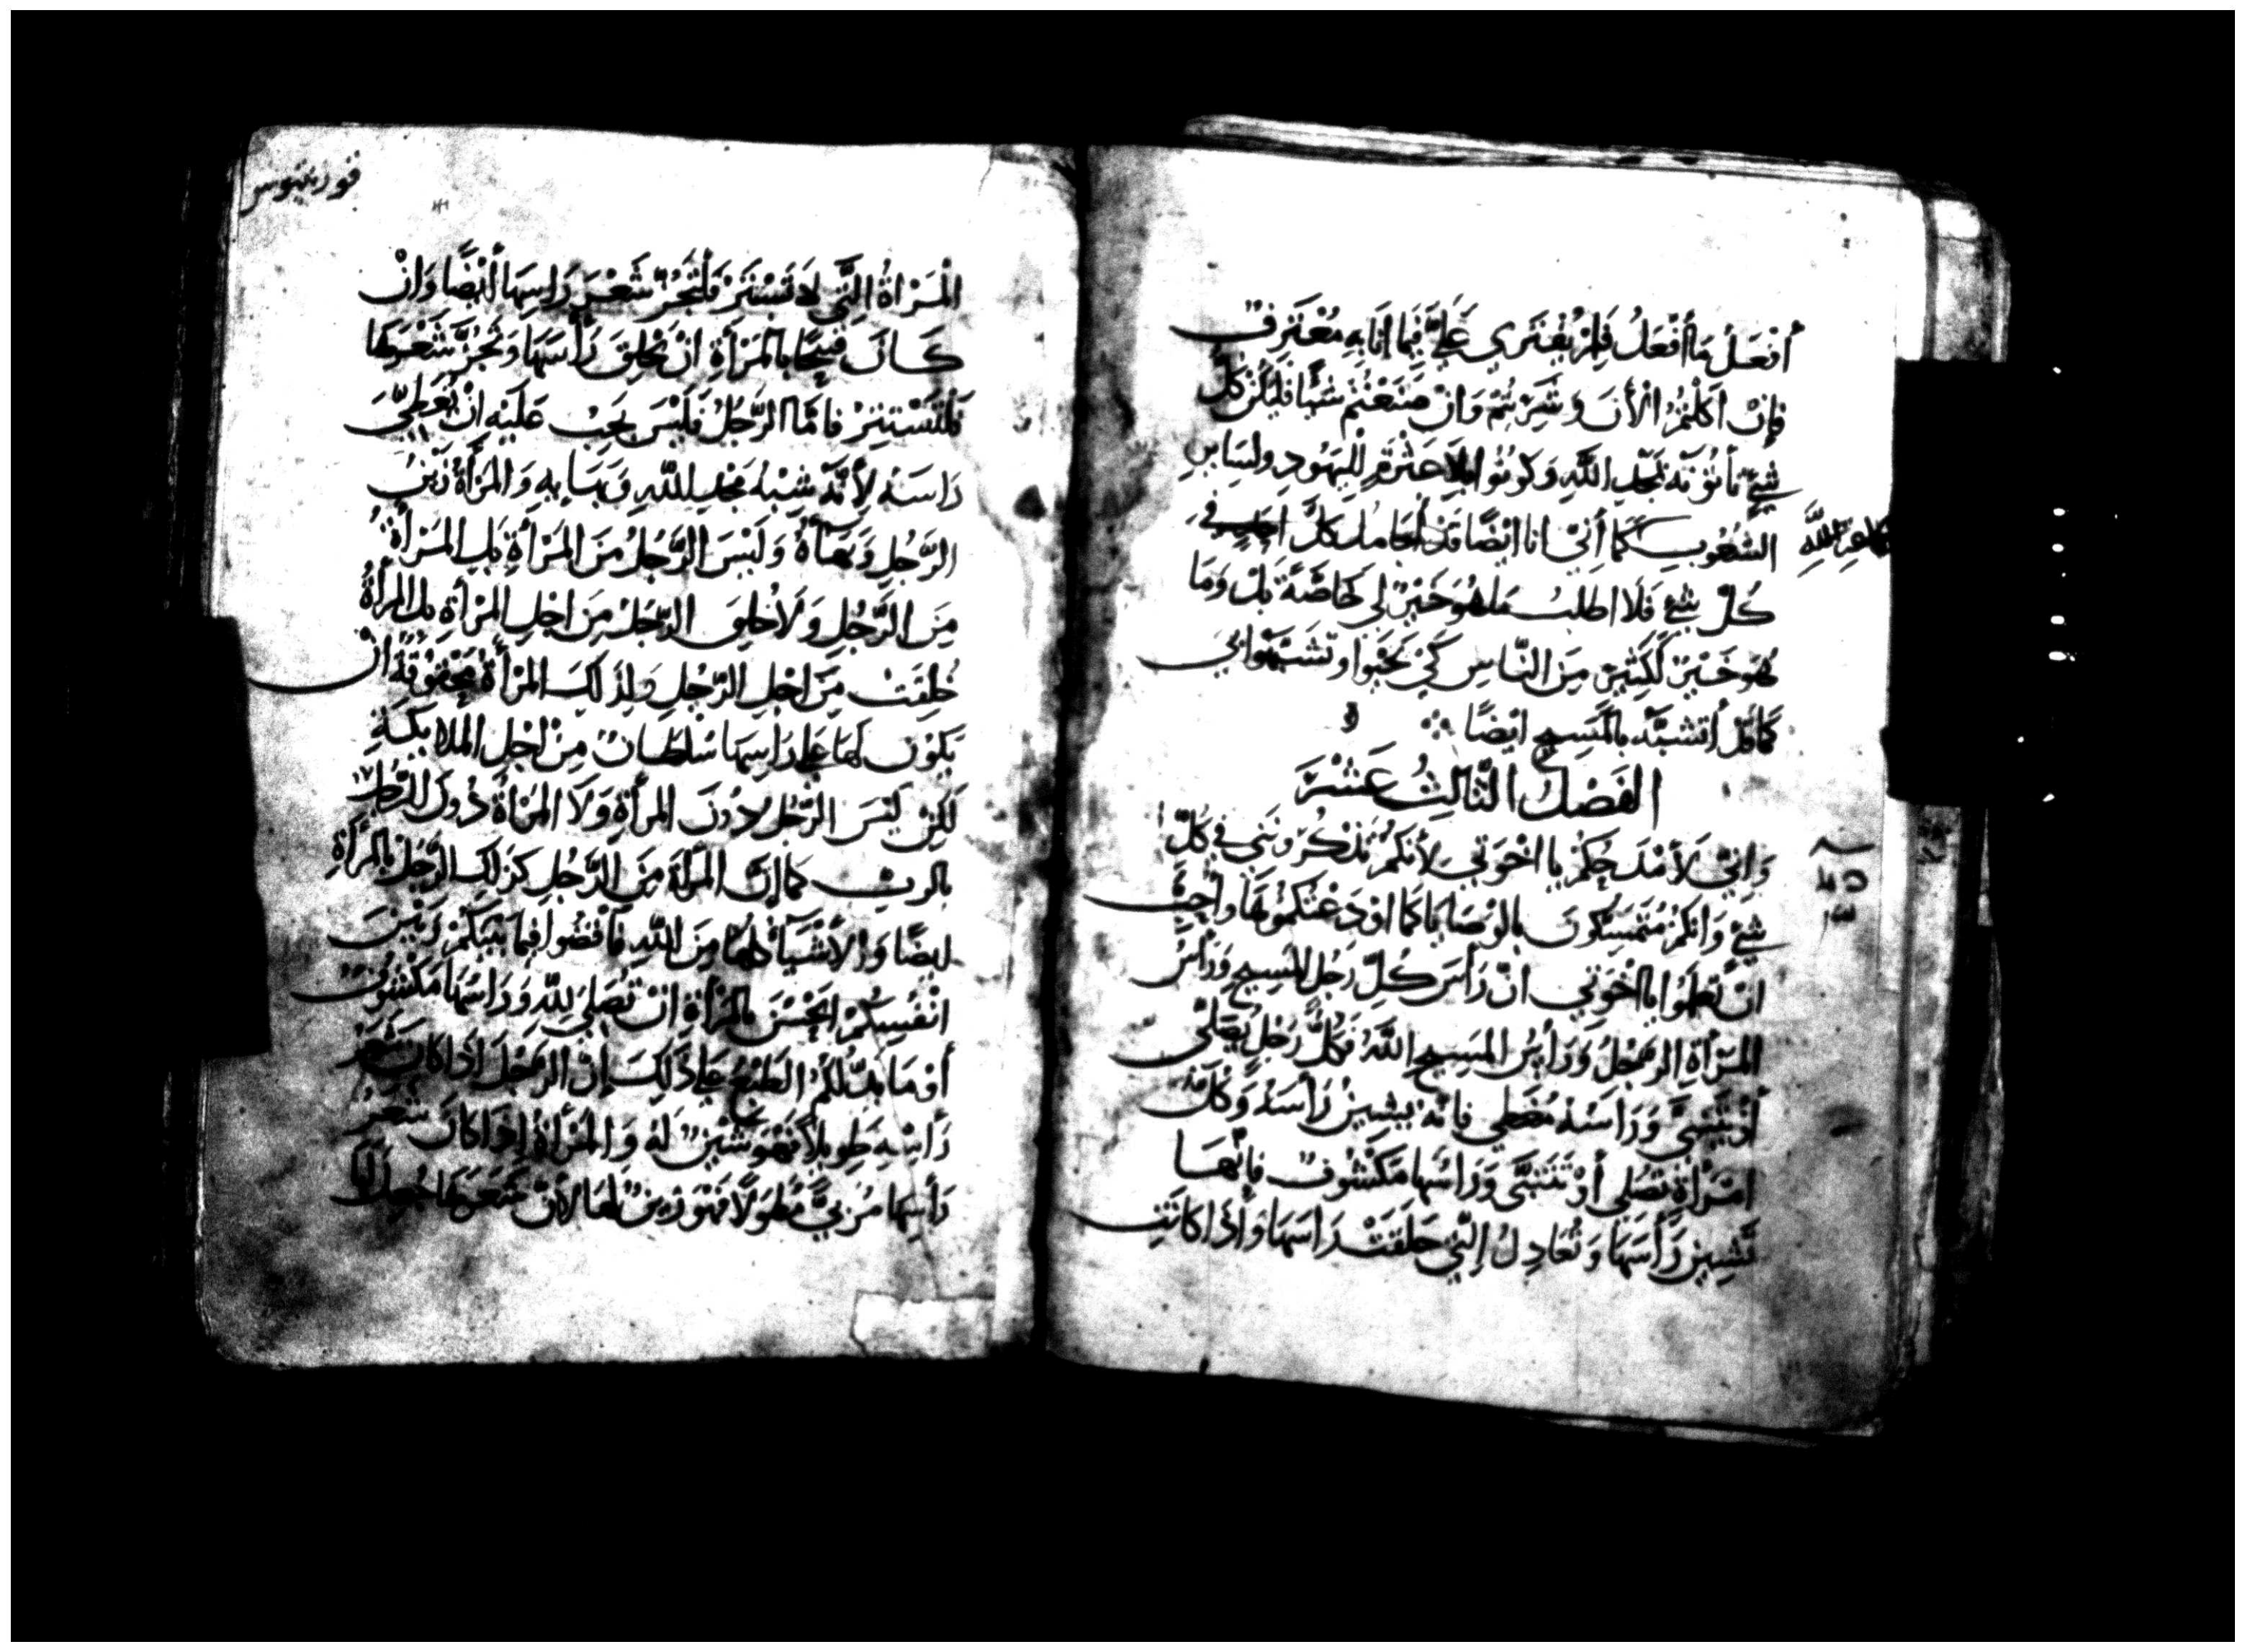 أفعَل ما أفعَلُ فلِمَ يُفتَرى عَليَّ فيما انا بِهِ مُعْترفٌ
فإن اكلتمُ الأنَ وشَرِبْتُم وَانْ صَنَعْتُم شيًا فَليَكُن كلّ
شيءٍ تأتُونَه لمجد اللَّهِ وَكونُوا بلا عَثْرةٍ لليَهُودِ ولسَايرِ
الشعُوبِ كما أنّي انا ايْضًا قد أجَامل كلّ احَدٍ في
كُلّ شيءٍ فَلَا اطلبُ مَا هُوَ خَيرٌ لي خاصّةً بَلْ وَمَا
هُوَ خَيرٌ لكَثِيرٍ مِنَ النّاسِ كي يَحْيَوا وتشبّهوا بي
كما قد أتشبّه بالمَسِيحِ ايضًا
الفَصْلُ الثّالِثُ عَشَرَ
وَاِنّي لأمْدَحُكمْ يا اخْوَتي لأنكمْ تَذْكُرُونَني في كلّ
شيءٍ وَانكمْ مُتَمَسِّكونَ بالوَصَايا كما اوْدَعْتكمُوهَا وأُحِبّ
انْ تعلمُوا يا أخْوَتي انّ رَأسَ كلّ رَجُلٍ المَسِيح وَرَأسُ
المَرْأةِ الرجُلُ وَرَأسُ المَسِيحِ اللَّهُ فَكلُّ رَجُلٍ يُصَلّي
أوْ يَتَنَبَّى وَرَاسُهُ مُغَطي فانّهُ يُشِينُ رَأسَهُ وَكلّ
امْرَأةٍ تصَلي أوْ تَتَنَبَّى وَرَاسُها مَكْشُوفٌ فانّها
تُشِينُ رَأسَهَا وَتُعَادِلُ الّتي حَلَقَتْ رَاسَهَا وَأذا كانَتِ
فورنتيوس
المَرْاةُ الّتي لا تَسْتَتِرُ فَلْتَجُزّ شَعْرَ رَاسِهَا أيْضًا وَانْ
كَانَ قَبيحًا بالمَرْأةِ انْ تَحْلِقَ رَأسَهَا وَتَجُزّ شَعْرَهَا
فَلتَسْتَتِرْ فامّا الرّجُلُ فَليْسَ يَجبُ عَلَيْهِ انْ يُغَطّيَ
رَاسَهُ لأنّهُ شِبْهُ مَجْدِ اللّهِ وَبَهايِهِ وَالمَرْأةُ زَيْنُ
الرّجُلِ وَبَهَاهُ وَلَيْسَ الرّجُلُ مِنَ المَرْأةِ بَلِ المَرْأةُ
مِنَ الرّجُلِ وَلَا خُلِقَ الرّجُلُ مِنَ اجْلِ المَرْأةِ بَل المرأةُ
خُلِقَتْ مِنَ اجْلِ الرّجُلِ وَلِذَلِكَ المَرْأةُ مَحْقُوقَةٌ انْ
يَكُونَ لهَا عَلى رَاسِهَا سُلطَانٌ مِنْ اجْلِ الملايكةِ
لَكِنْ لَيْسَ الرّجُلُ دُونَ المرأةِ وَلَا المَرْأةُ دُونَ الرّجُلِ
بالربّ كما انّ المرأة مِنَ الرّجُلِ كذلِكَ الرّجُلُ بالمرْأةِ
ايضًا وَالأشْيَاءُ كلهَا مِنَ اللّهِ فاقضُوا فيما بَيْنكمْ وَبَيْنَ
انْفُسِكُمْ ايَحْسُنُ بالمَرْأةِ انْ تُصَليَ للّهِ وَرَاسُهَا مَكْشُوفٌ
أوْ مَا يَدُلّكُمُ الطبْعُ عَلى ذَلِكَ إنّ الرّجُلَ اذَا كانَ شَعَرُ
رَأسِهِ طَويلًا فَهُوَ شَيْنٌ لهُ وَالمَرْأةُ اِذَا كانَ شَعَرُ
رَأسِهَا مُرَبًّى مُطَوّلًا فَهُوَ زَينٌ لهَا لأنّ شَعَرَهَا جُعِلَ لهَا